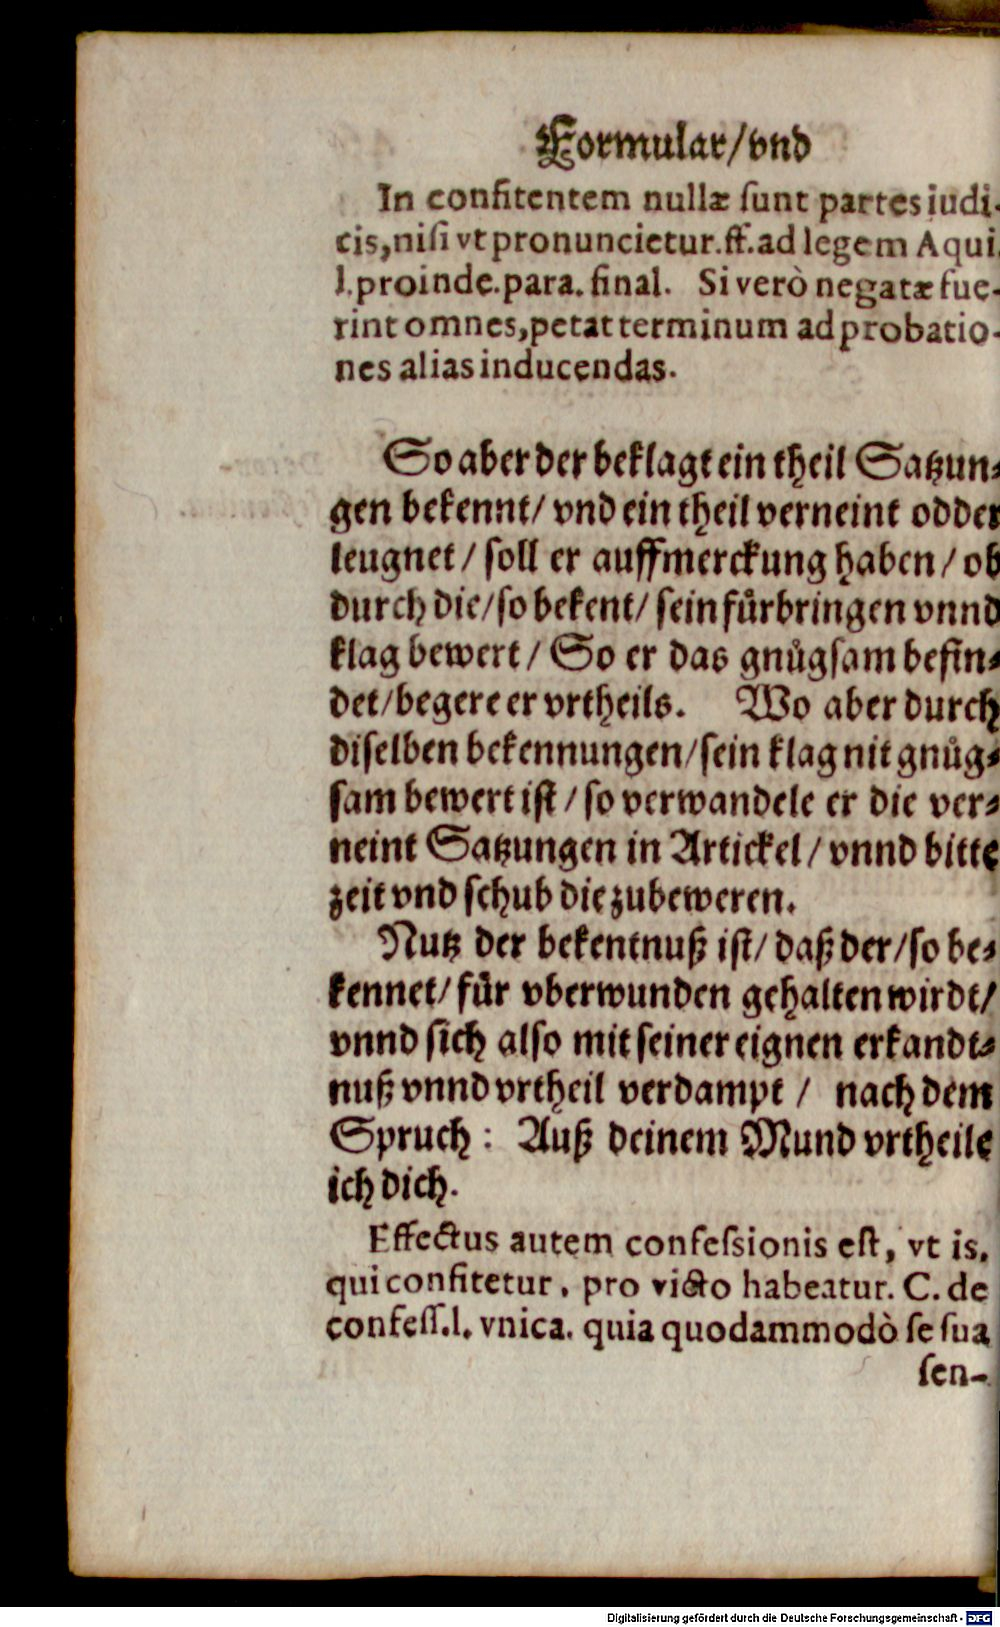 Formular/vnd
In confitentem nullæ ſunt partes iudi-
cis,niſi vt pronuncietur.ff.ad legem Aqui.
l.proinde.para. final. Si verò negatæ fue-
rint omnes,petat terminum ad probatio-
nes alias inducendas.
So aber der beklagt ein theil Satzun-
gen bekennt/ vnd ein theil verneint odder
leugnet / ſoll er auffmerckung haben / ob
durch die/ſo bekent/ ſein fuͤrbringen vnnd
klag bewert / So er das gnuͤgſam befin-
det/begere er vrtheils. Wo aber durch
diſelben bekennungen/ſein klag nit gnuͤg-
ſam bewert iſt / ſo verwandele er die ver-
neint Satzungen in Artickel / vnnd bitte
zeit vnd ſchub die zubeweren.
Nutz der bekentnuß iſt/ daß der/ſo be-
kennet/ fuͤr vberwunden gehalten wirdt/
vnnd ſich alſo mit ſeiner eignen erkandt-
nuß vnnd vrtheil verdampt / nach dem
Spruch : Auß deinem Mund vrtheile
ich dich.
Effectus autem confeſsionis eſt, vt is,
qui confitetur, pro victo habeatur. C. de
confeſſ.l. vnica. quia quodammodò ſe ſua
ſen-
Digitalisierung gefördert durch die Deutsche Forschungsgemeinschaft - DFG